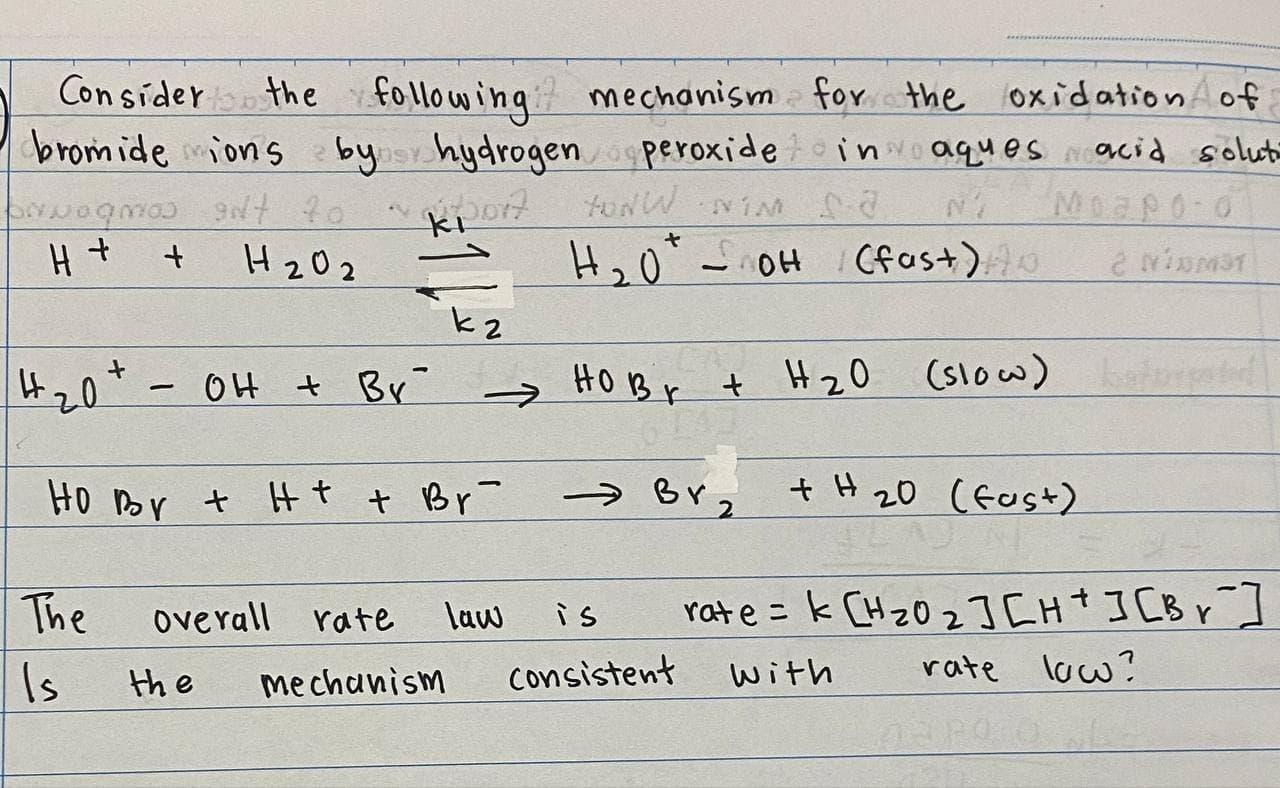 Consider the following mechanism for the oxidation of
bromide ions by hydrogen peroxide in aques acid soluti
K1
H⁺ + H₂O₂ ⇌ H₂O⁺ - OH (fast)
k2
H₂O⁺ - OH + Br⁻ → HOBr + H₂O (slow)
HOBr + H⁺ + Br⁻ → Br₂ + H₂O (fast)
The overall rate law is rate = k [H₂O₂][H⁺][Br⁻]
Is the mechanism consistent with rate law?